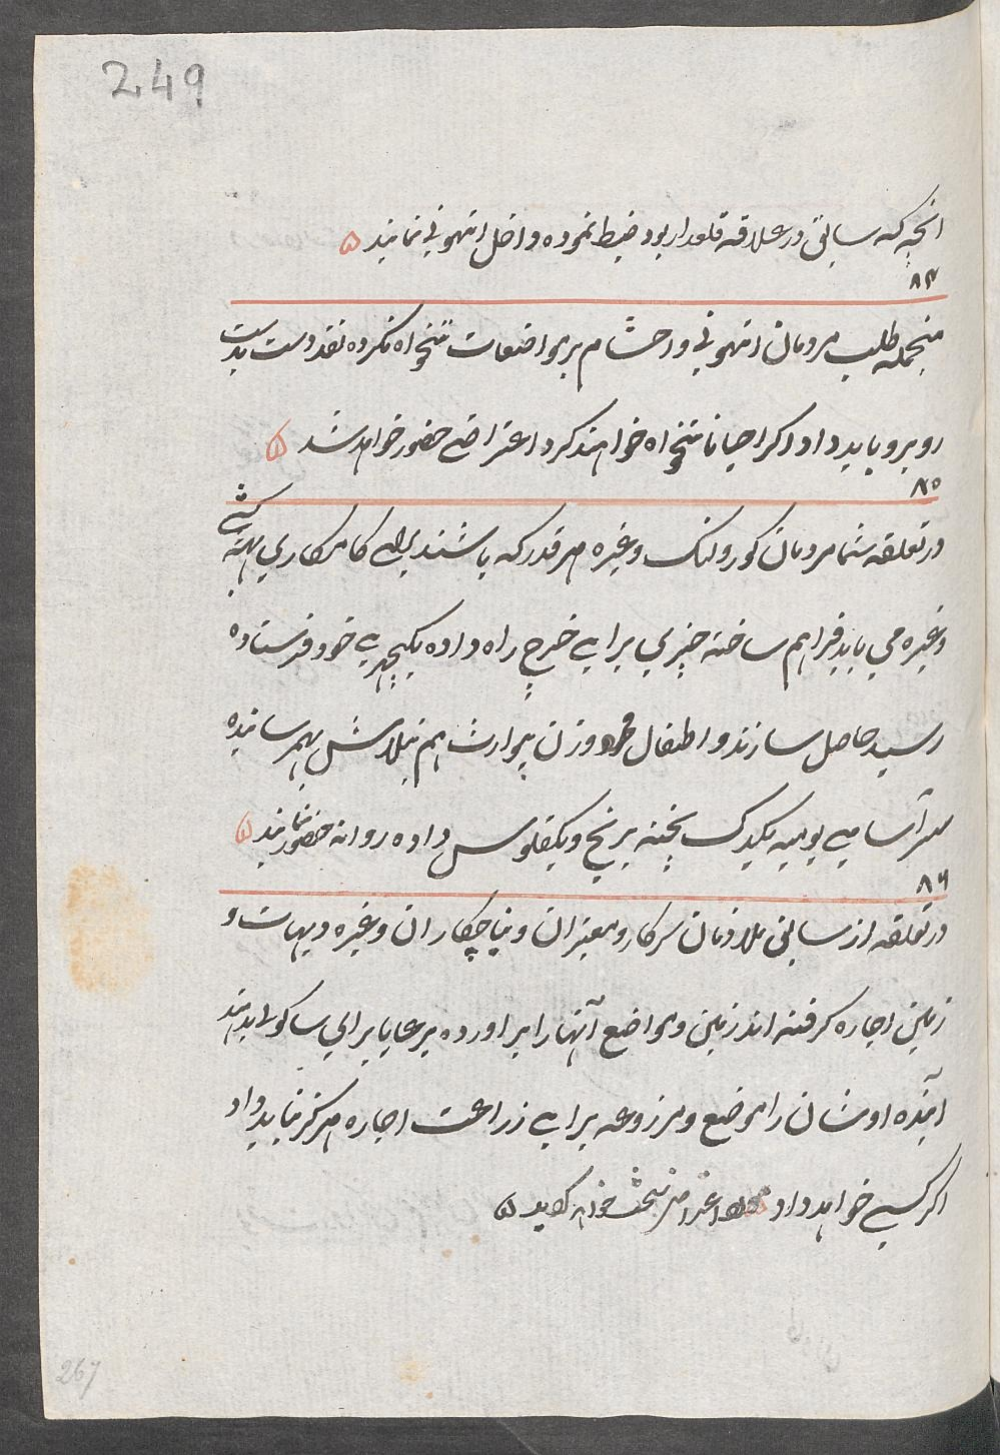 249
انچه که سابق در علاقه قلعدار بود ضبط نموده داخل انتهونی نمایند ۵
۸۴
منجمله طلب مردمان انتهونی و احشام بر مواضعات تنخواه نکرده نقد دست بدست
روبرو باید داد اکر احیانا تنخواه خواهند کرد اعتراضی حضور خواهد شد ۵
۸۵
در تعلقه شما مردمان کور و لنک و غیره هر قدر که باشند برای کامرکاری
وغیره می باید فراهم ساخته چیزی برای خرچ راه داده خود فرستاده
رسید حاصل سازند و اطفال مرد و زن بیوارث هم بتلاش بهم رسانیده
هر آسامی یومیه یکیدک پخته برنج و یکفلوس داده روانه حضور نمایند ۵
۸۶
در تعلقه از سابق ملازمان سرکار و معتبران و غیره دیهات و
زمین اجاره کرفته اند زمین و مواضع آنها را براورده برعایا برای ساکولی بدهند
آینده اوشان را موضع و مزروعه برای زراعت اجاره هرکز نباید داد
اکر کسی خواهد داد اعتراض سخت خواهد ۵
267